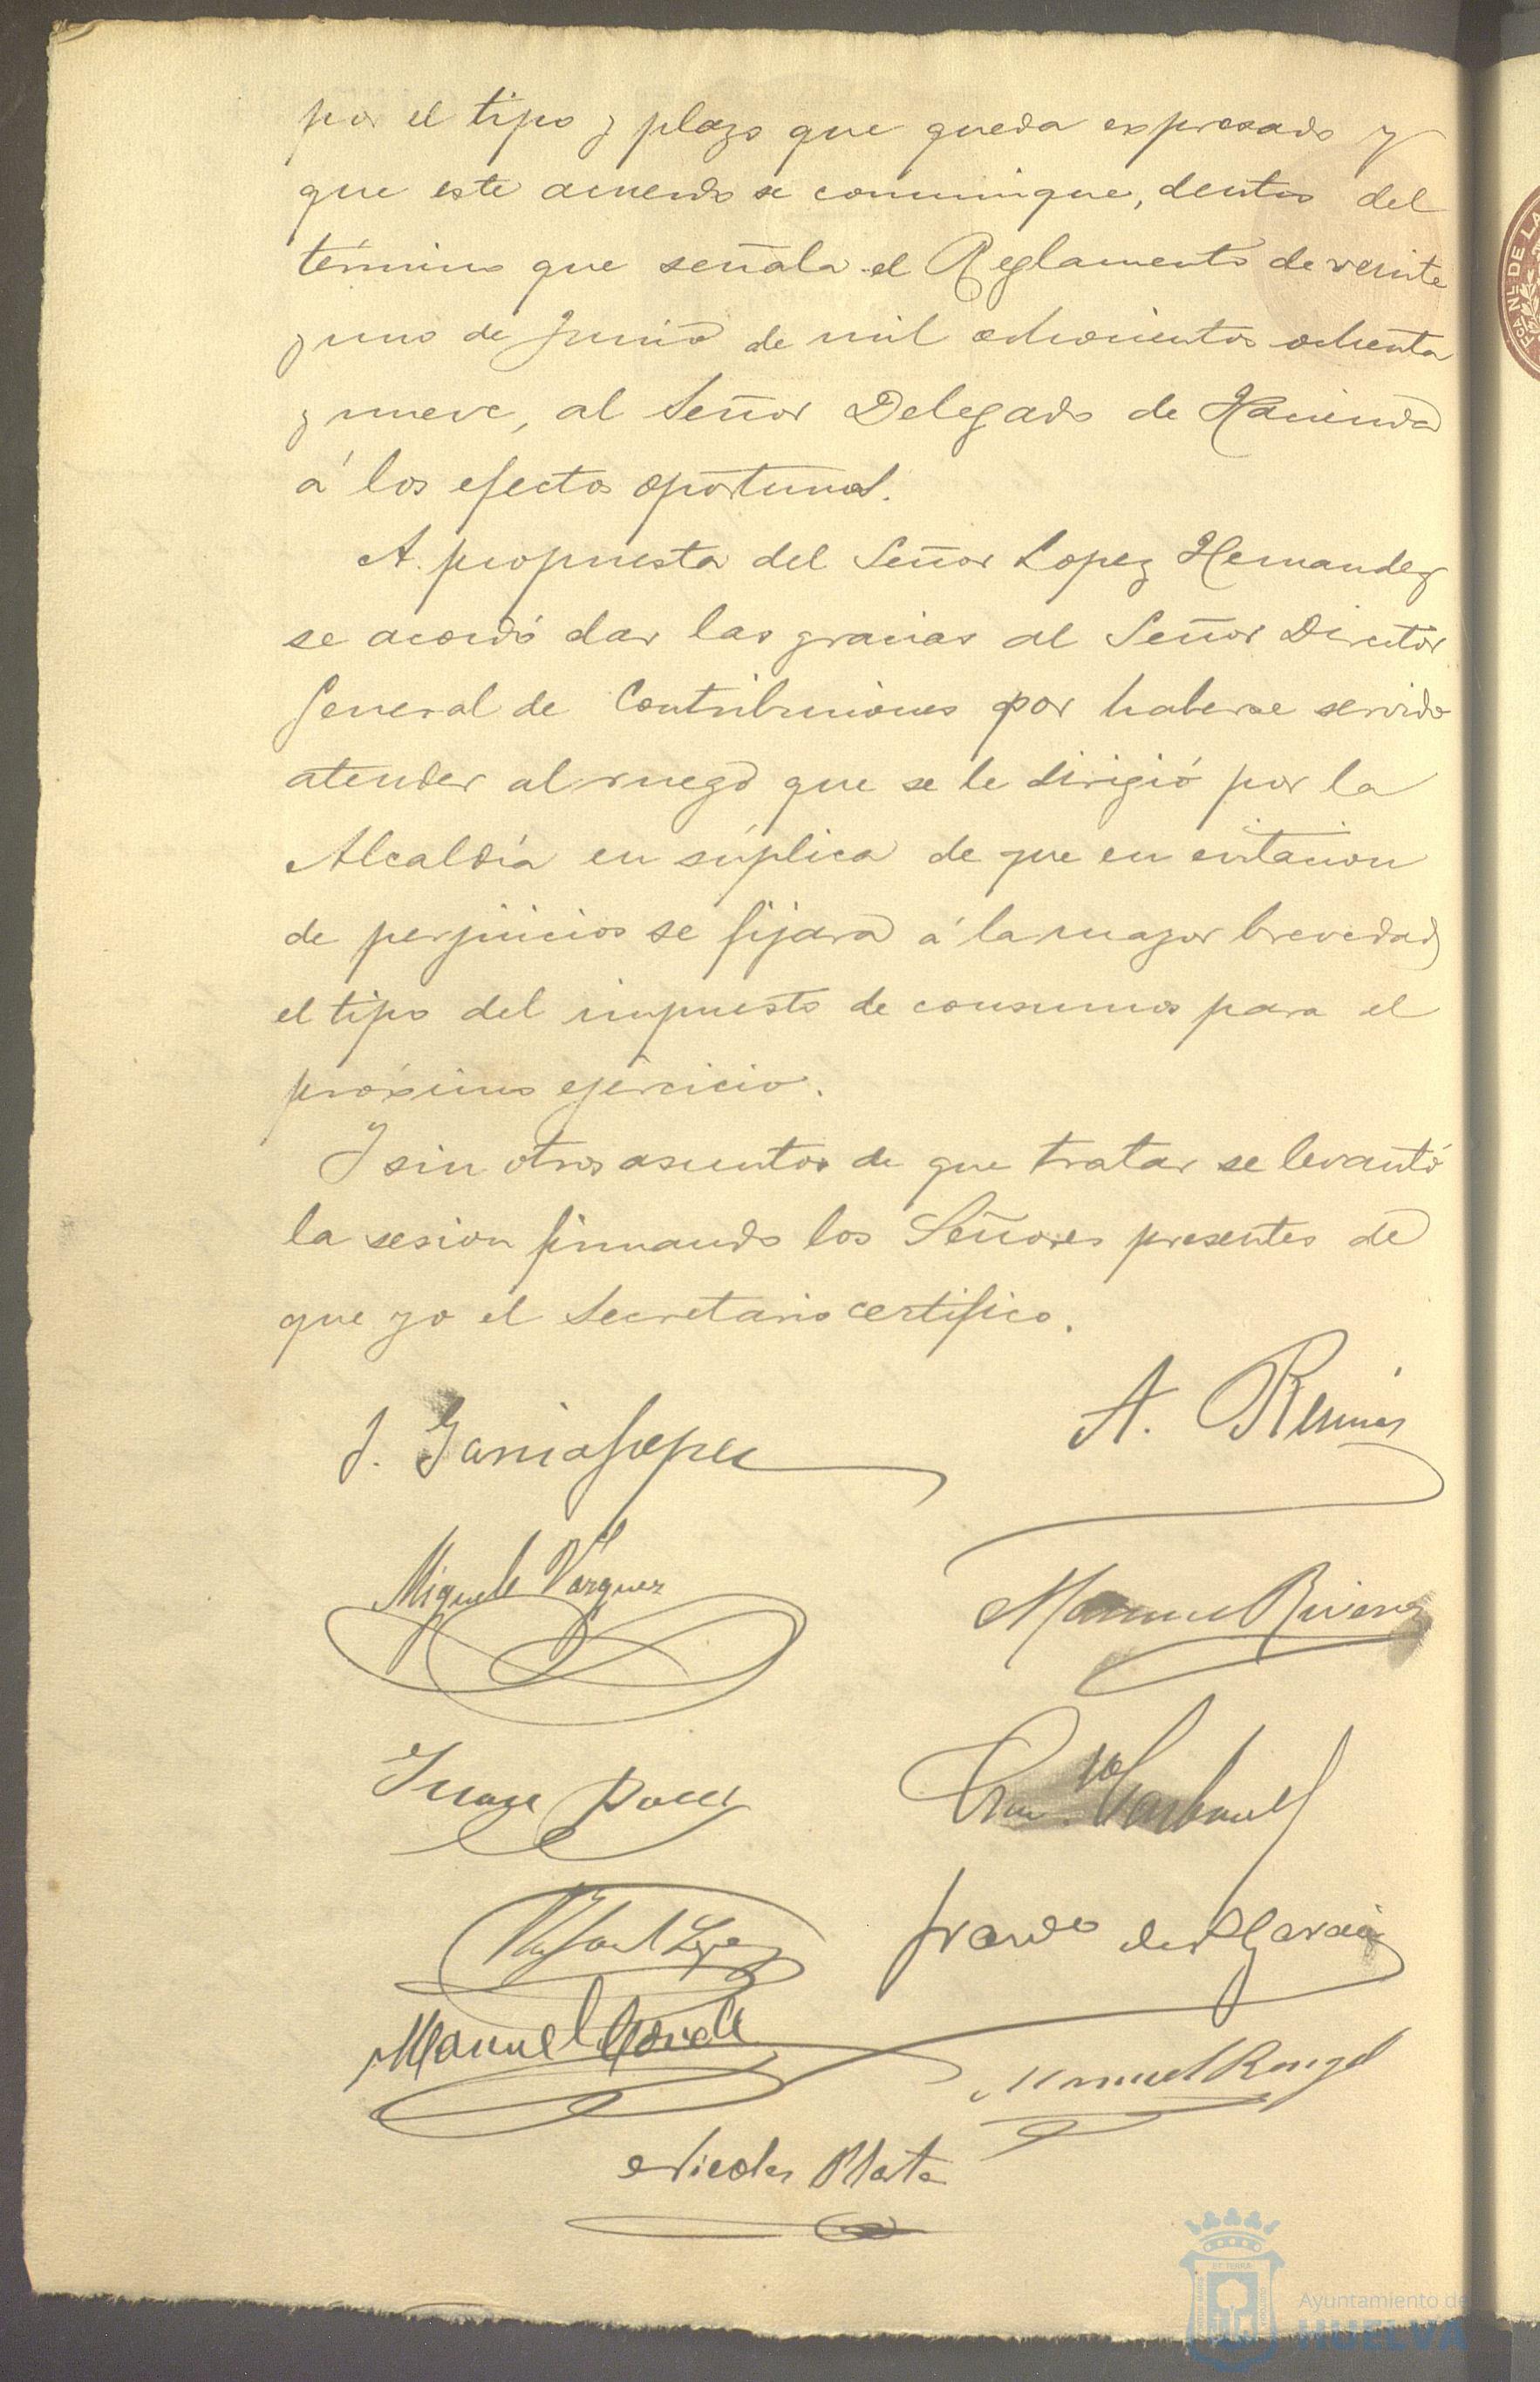 por el tipo y plazo que queda expresado y
que este acuerdo se comunique, dentro del
término que señala el Reglamento de veinte
y uno de Junio de mil ochocientos ochenta
y nueve, al Señor Delegado de Hacienda
á los efectos oportunos.
A propuesta del Señor Lopez Hernandez
se acordó dar las gracias al Señor Director
General de Contribuciones por haberse servido
atender al ruego que se le dirigió por la
Alcaldía en súplica de que en evitacion
de perjuicios se fijara á la mayor brevedad
el tipo del impuesto de consumos para el
próximo ejercicio.
Y sin otros asuntos de que tratar se levantó
la sesion firmando los Señores presentes de
que yo el Secretario certifico.
J. Garcia Lopez
A.
Miguel Vazquez
Manuel Rivera
Rafael Lopez
Garcia
Manuel
Manuel Rangel
Nicolas Plata
Ayuntamiento de
HUELVA
DE LA